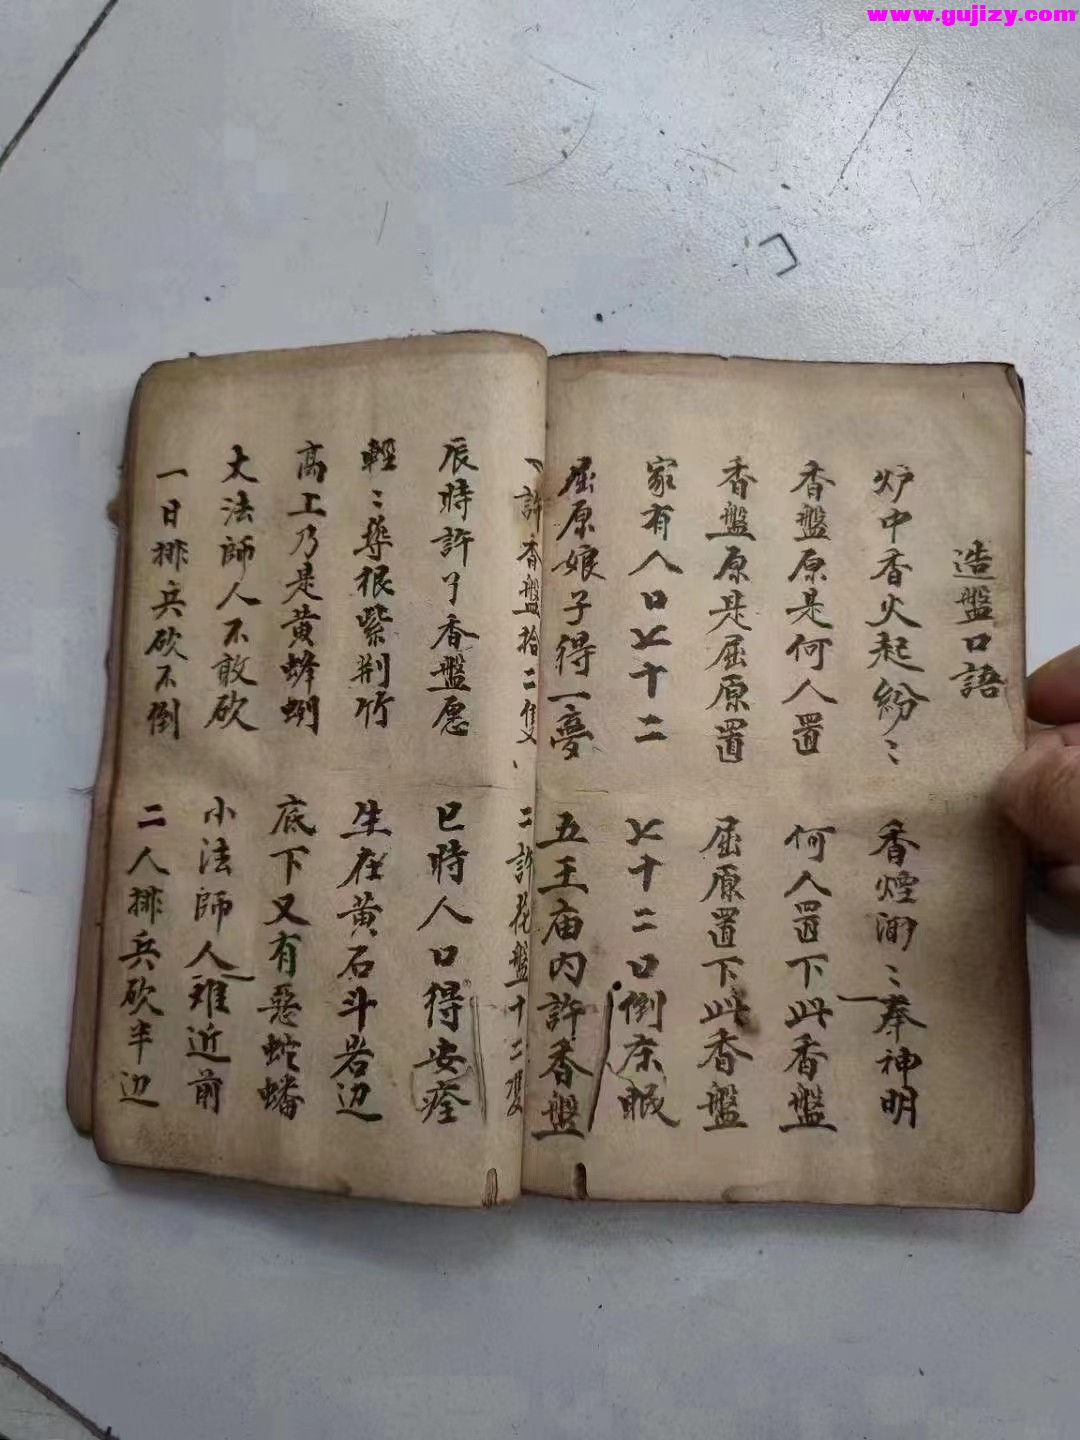 www.gujizy.com
造盤口語
炉中香火起紛〻 香煙渺〻奉神明
香盤原是何人置 何人置下此香盤
香盤原是屈原置 屈原置下此香盤
家有八口七十二 七十二口倒床眠
屈原娘子得一夢 五王庙内許香盤
許香盤拾二隻 二許花盤十二隻
辰時許了香盤愿 已時人口得安痊
輕〻尋根紫荆竹 生在黄石斗岩边
高上乃是黄蜂蜊 底下又有惡蛇蟠
大法師人不敢砍 小法師人难近前
一日排兵砍不倒 二人排兵砍半边